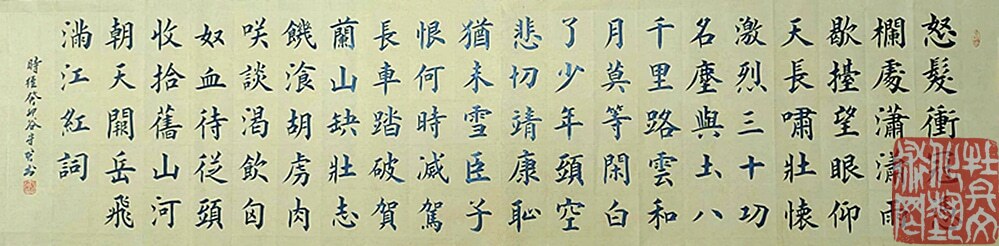 怒髮衝冠憑
欄處瀟瀟雨
歇擡望眼仰
天長嘯壯懷
激烈三十功
名塵與土八
千里路雲和
月莫等閑白
了少年頭空
悲切靖康恥
猶未雪臣子
恨何時滅駕
長車踏破賀
蘭山缺壯志
饑湌胡虜肉
咲談渴飲匈
奴血待從頭
收拾舊山河
朝天闕岳飛
滿江紅詞
時維癸卯谷